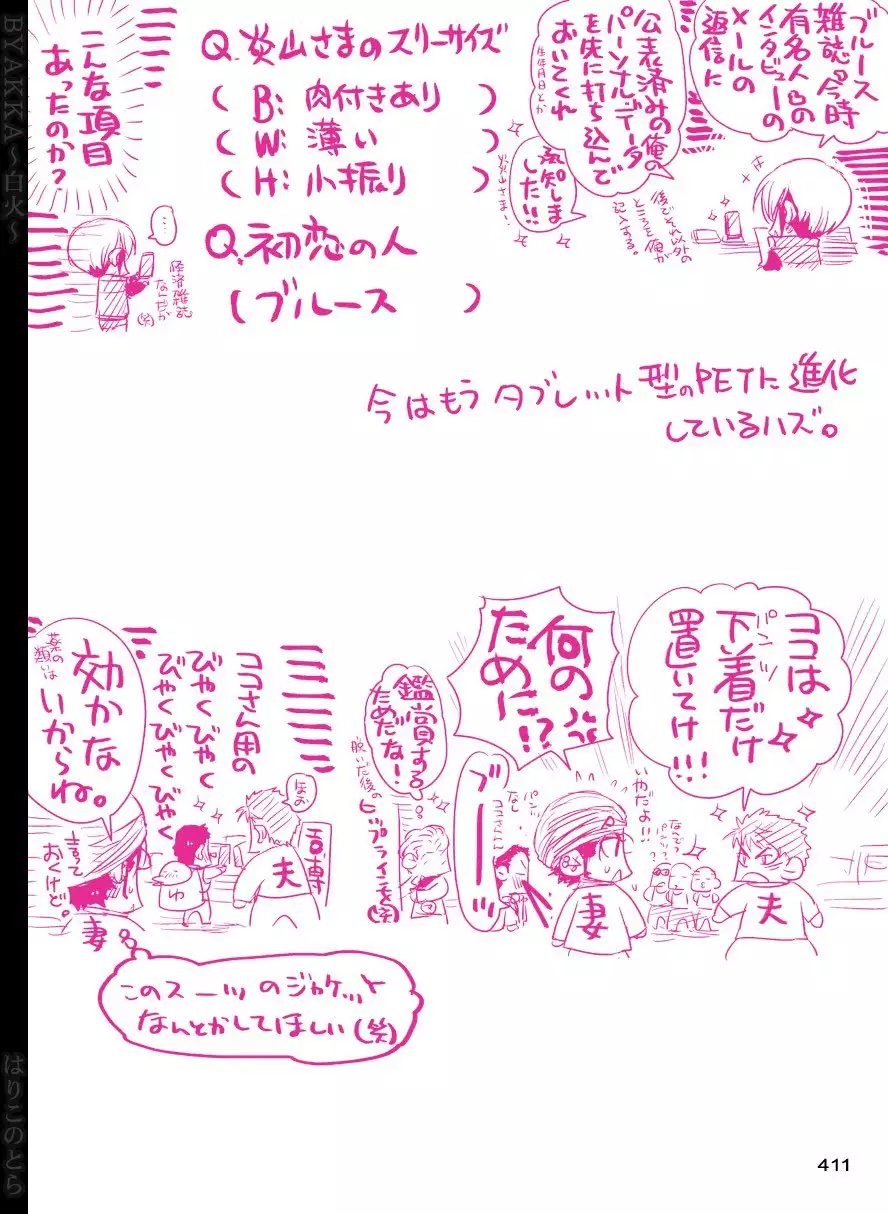 ブルース
雑誌や今時
有名人らの
インタビューの
メールの
返信に
公表済みの俺の
パーソナルデータ
を先に打ち込んで
おいてくれ
生年月日とか
承知しま
した!!
炎山さま…
後でそれ以外の
ところを俺が
記入する。
Q.炎山さまのスリーサイズ
(B:肉付きあり)
(W:薄い)
(H:小振り)
Q.初恋の人
(ブルース)
こんな項目
あったのか?
…
経済雑誌
なんだが
(笑)
今はもうタブレット型のPETに進化
しているハズ。
ココは
下着だけ
パンツ
置いてけ!!!
いやだよ!!
なんでっ
パンツ?
夫
何の
ために!?
妻
パンツ
なし
ココさん
ブーーッ
鑑賞する
ためだな!
脱いだ後の
ヒップラインを(笑)
ほお
夫
ココさん用の
びやくびやく
びやくびやくびやく
ゆ
薬の
類いは
効かな
いからね。
言って
おくけど。
妻
このスーツのジャケット
なんとかしてほしい(笑)
411
BYAKKA～白火～
はりこのとら